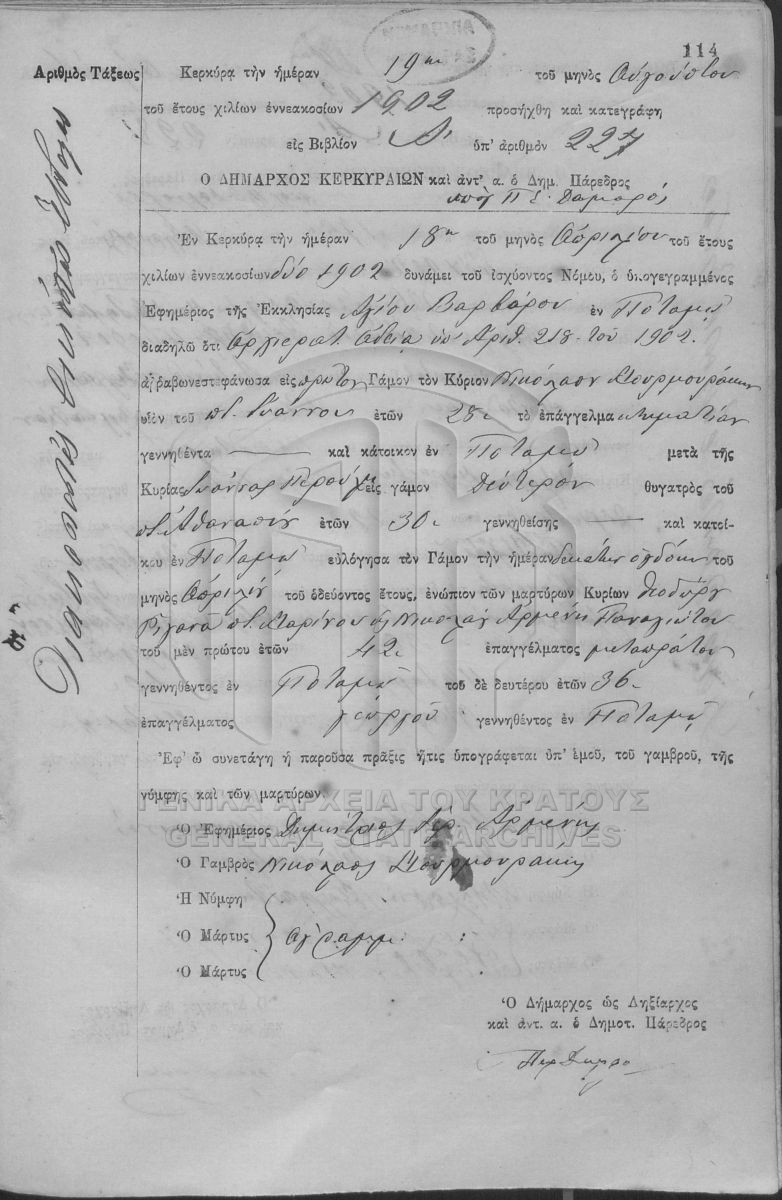 114
Ἀριθμὸς Τάξεως
Κερκύρᾳ τὴν ἡμέραν 19ην τοῦ μηνὸς Αὐγούστου
τοῦ ἔτους χιλίων ἐννεακοσίων 1902 προσήχθη καὶ κατεγράφη
εἰς Βιβλίον Α' ὑπ' ἀριθμὸν 227
Ὁ ΔΗΜΑΡΧΟΣ ΚΕΡΚΥΡΑΙΩΝ καὶ ἀντ' α. ὁ Δημ. Πάρεδρος
Ἐν Κερκύρᾳ τὴν ἡμέραν 18ην τοῦ μηνὸς Ἀπριλίου τοῦ ἔτους
χιλίων ἐννεακοσίων δύο 1902 δυνάμει τοῦ ἰσχύοντος Νόμου, ὁ ὑπογεγραμμένος
Ἐφημέριος τῆς Ἐκκλησίας Ἁγίου Βαρβάρου ἐν Ποταμῷ
διαδηλῶ ὅτι Ἀρχιερατ. Ἀδείᾳ ὑπ' Ἀριθ. 218 τοῦ 1902.
ἀῤῥαβωνεστεφάνωσα εἰς πρῶτον Γάμον τὸν Κύριον Νικόλαον Μουρμουράκην
υἱὸν τοῦ π. Ἰωάννου ἐτῶν 28 τὸ ἐπάγγελμα κτηματίαν
γεννηθέντα — καὶ κάτοικον ἐν Ποταμῷ μετὰ τῆς
Κυρίας Ἰωάννας εἰς γάμον δεύτερον θυγατρὸς τοῦ
π. Ἀθανασίου ἐτῶν 30 γεννηθείσης — καὶ κατοί-
κου ἐν Ποταμῷ εὐλόγησα τὸν Γάμον τὴν ἡμέραν δεκάτην ὀγδόην τοῦ
μηνὸς Ἀπριλίου τοῦ ὁδεύοντος ἔτους, ἐνώπιον τῶν μαρτύρων Κυρίων Θεοδώρου
Ῥιγανᾶ π. Μαρίνου ἢ Νικολάου Ἀρμένη Παναγιώτου
τοῦ μὲν πρώτου ἐτῶν 42 ἐπαγγέλματος μεταπράτου
γεννηθέντος ἐν Ποταμῷ τοῦ δὲ δευτέρου ἐτῶν 36
ἐπαγγέλματος γεωργοῦ γεννηθέντος ἐν Ποταμῷ
Ἐφ' ᾧ συνετάγη ἡ παροῦσα πρᾶξις ἥτις ὑπογράφεται ὑπ' ἐμοῦ, τοῦ γαμβροῦ, τῆς
νύμφης καὶ τῶν μαρτύρων.
ΓΕΝΙΚΑ ΑΡΧΕΙΑ ΤΟΥ ΚΡΑΤΟΥΣ
GENERAL STATE ARCHIVES
Ὁ Ἐφημέριος Δημήτριος Ἱερ. Ἀρμένης
Ὁ Γαμβρὸς Νικόλαος Μουρμουράκης
Ἡ Νύμφη
Ὁ Μάρτυς Ἀγράμμ.
Ὁ Μάρτυς
Ὁ Δήμαρχος ὡς Ληξίαρχος
καὶ ἀντ. α. ὁ Δημοτ. Πάρεδρος